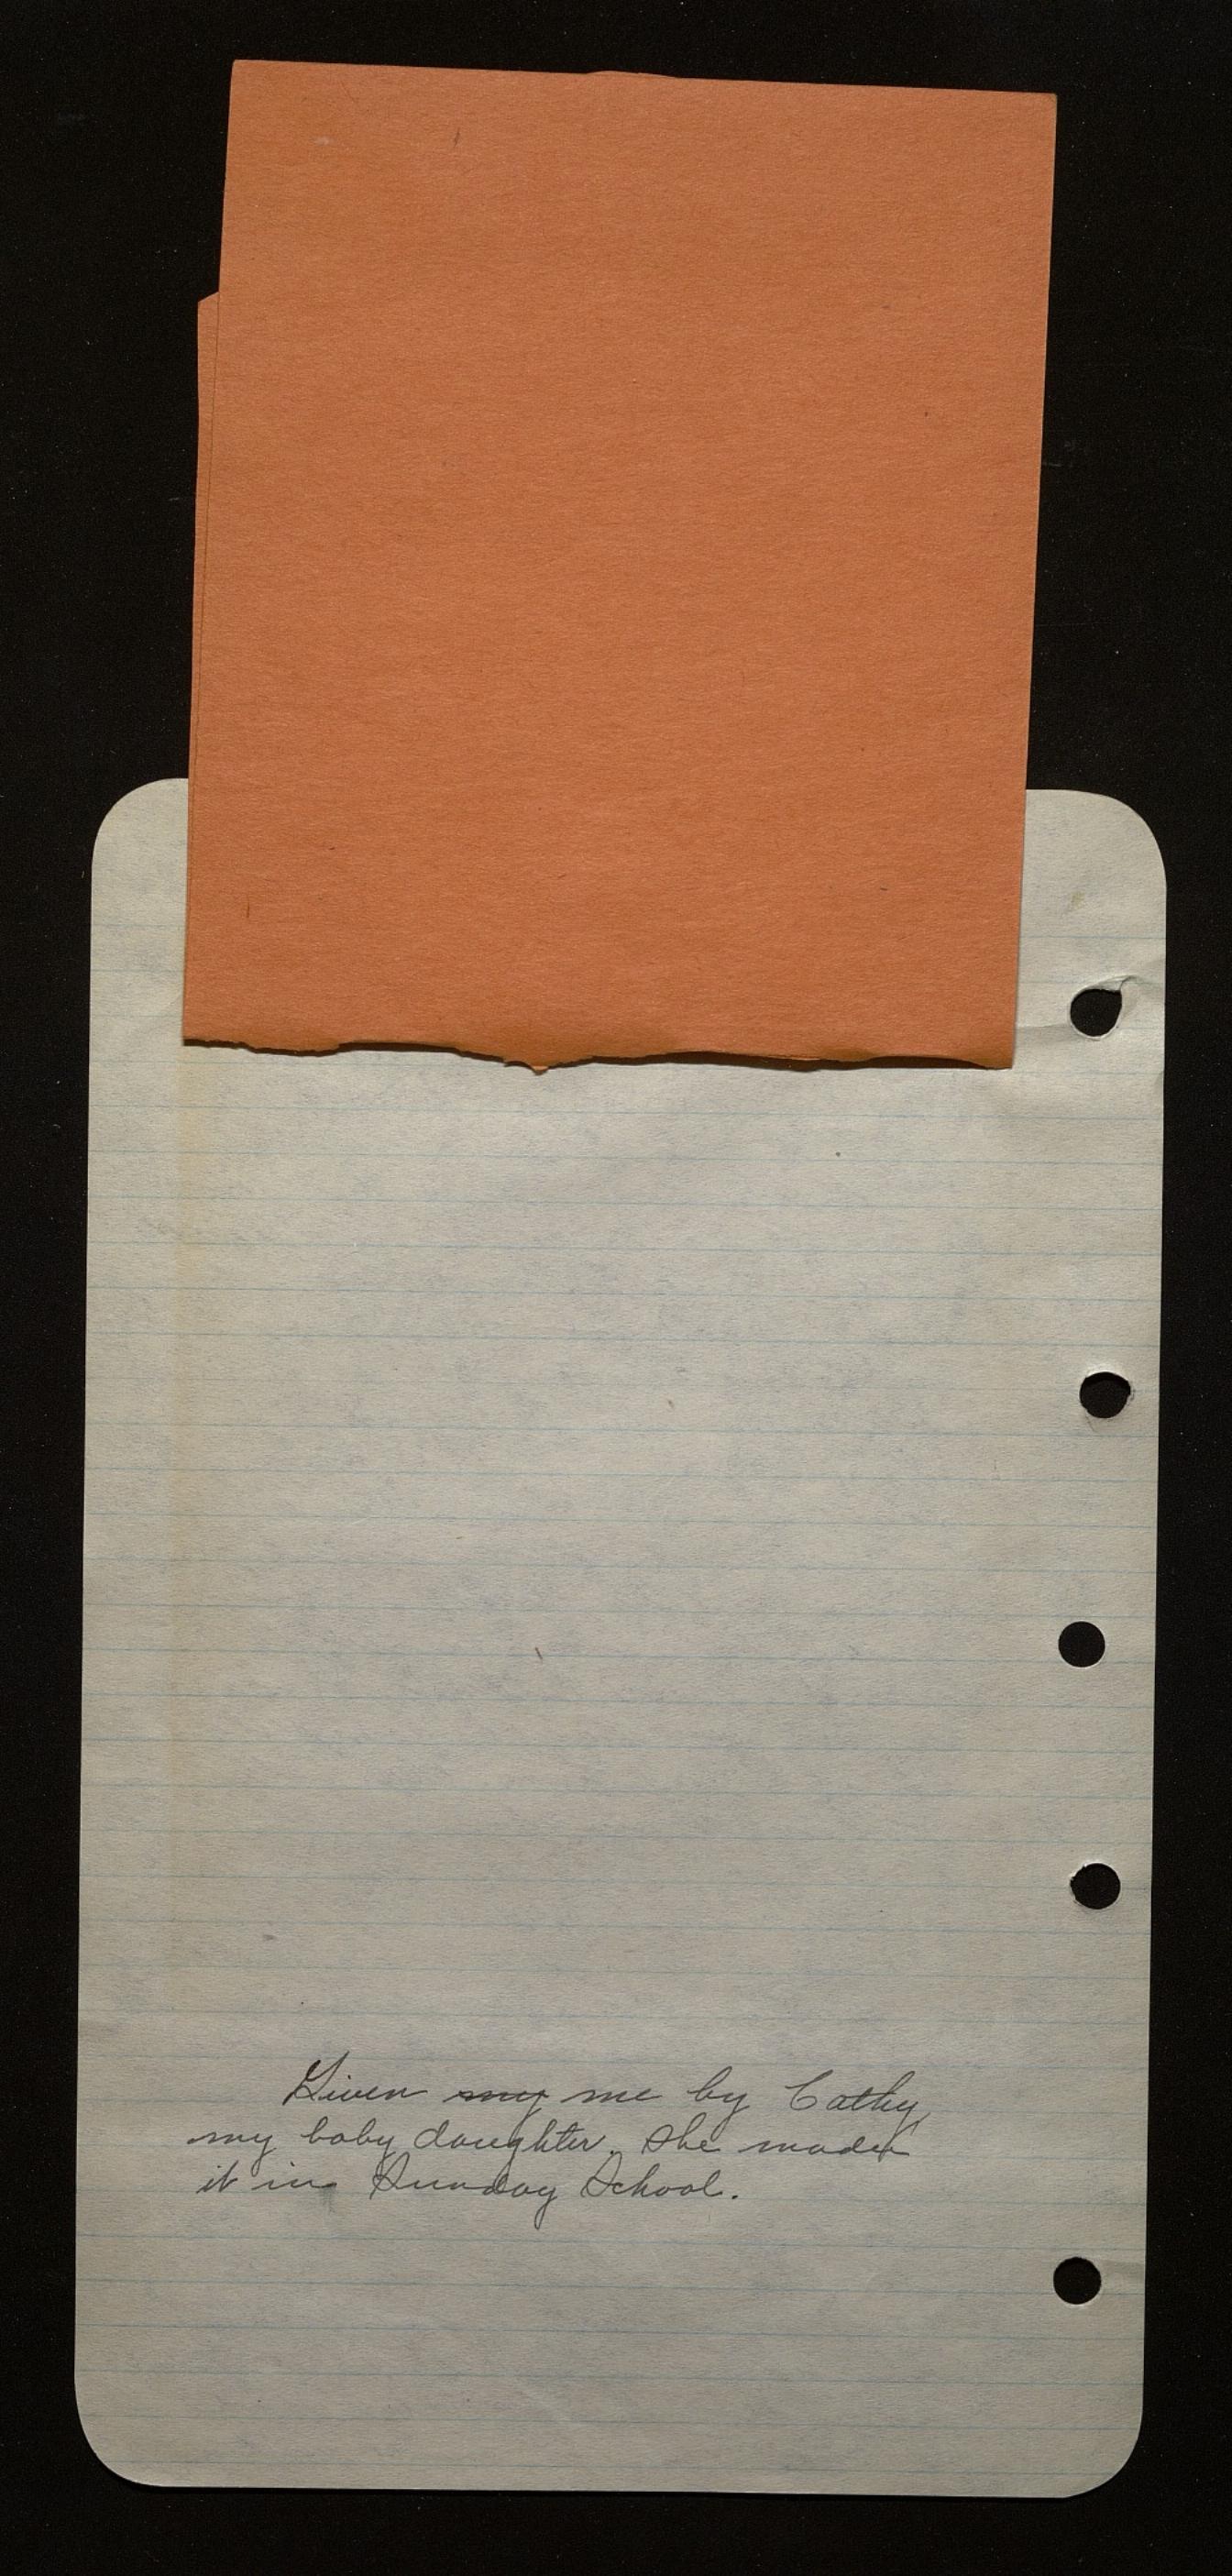 Given my me by Cathy,
my baby daughter. She made
it in Sunday School.